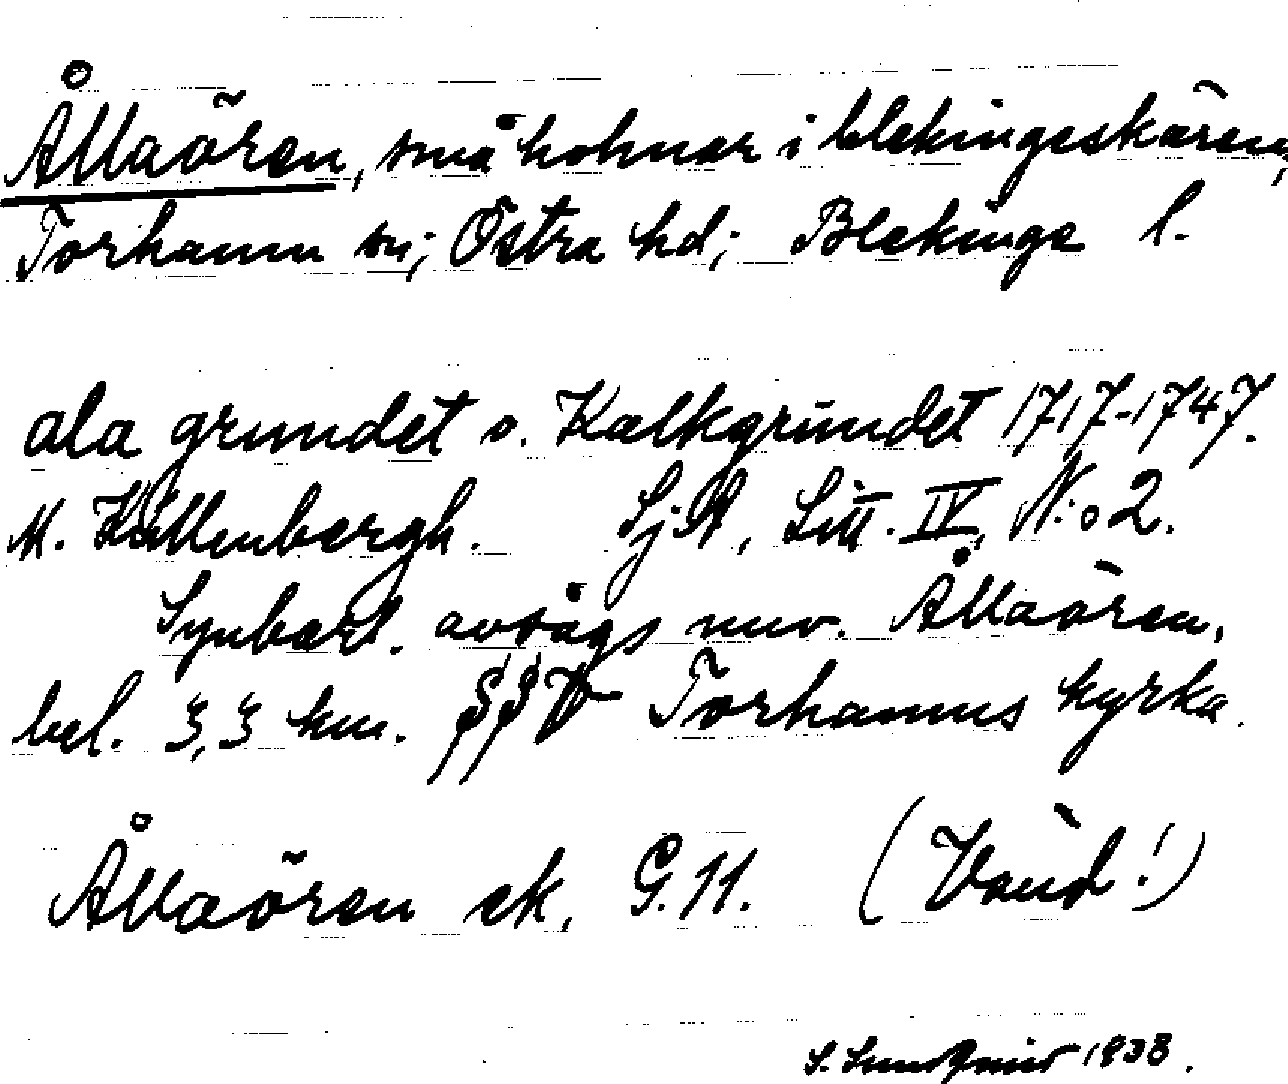 Ållaören, små holmar i blekingeskären,
Torhamn sn; Östra hd; Blekinge l.
ala grundet o. Kalkgrundet 1717-1747.
M. Källenbergh. SjA, Litt. IV, N:o 2.
Synbarl. avsågs nuv. Ållaören,
bel. 3,3 km. SSV Torhamns kyrka.
Ållaören ek. G. 11. (Vänd!)
S. Lundqvist 1938.